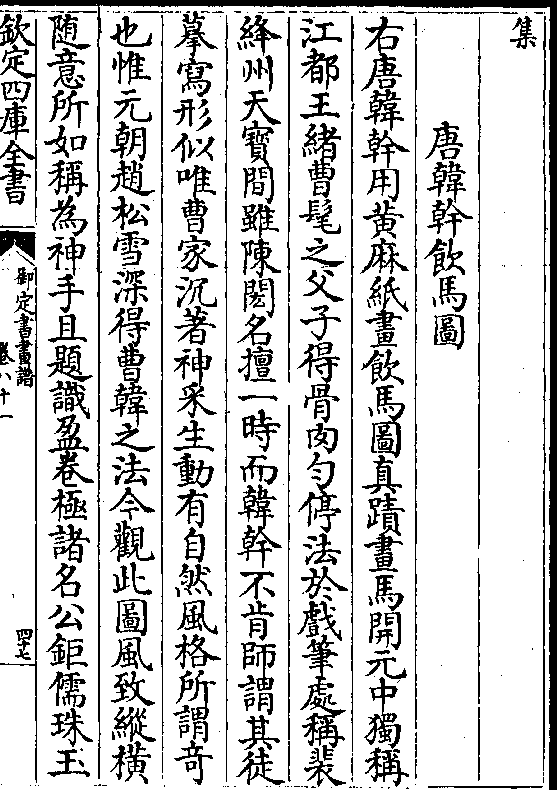 集
唐韓幹飲馬圖
右唐韓幹用黄麻紙畫飲馬圖真蹟畫馬開元中獨稱
江都王緒曹髦之父子得骨肉勻停法於戲筆處稱裴
絳州天寶間雖陳閎名擅一時而韓幹不肯師謂其徒
摹寫形似唯曹家沉著神采生動有自然風格所謂竒
也惟元朝趙松雪深得曹韓之法今觀此圖風致縱横
随意所如稱為神手且題識盈卷極諸名公鉅儒珠玉
欽定四庫全書
御定書畫譜
卷八十一
四十七